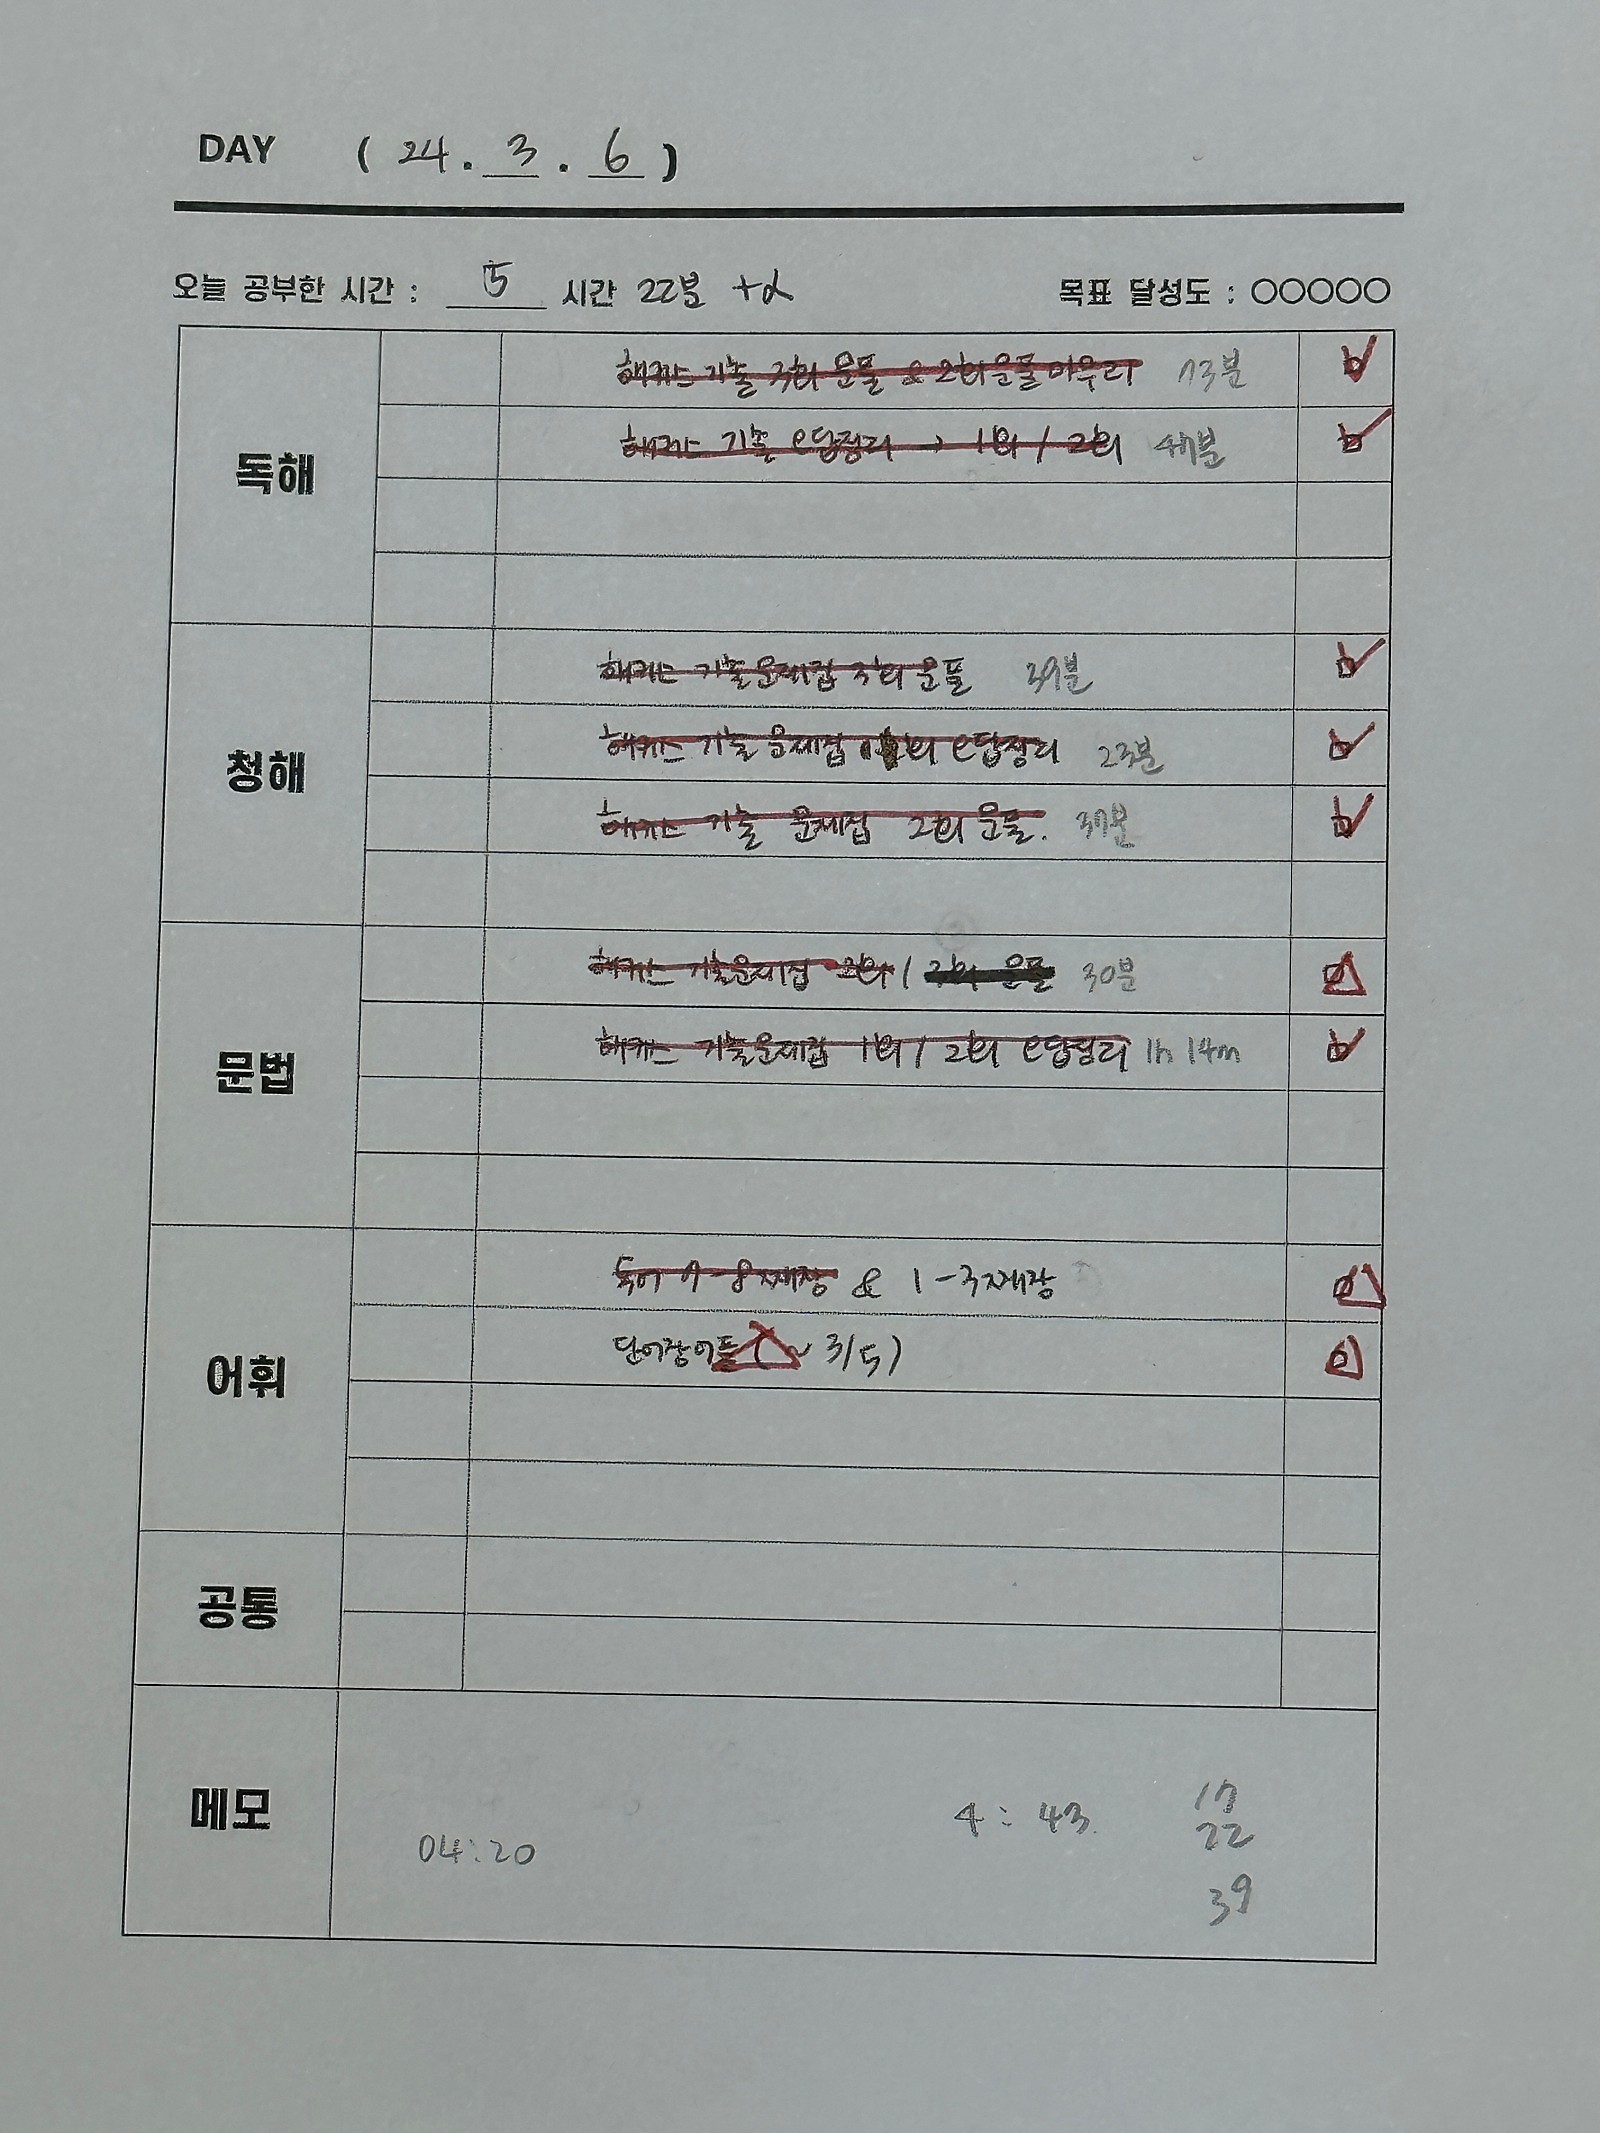 DAY ( 24 . 3 . 6 )
오늘 공부한 시간 : 5 시간 22분 +α 목표 달성도 : ○○○○○
독해
해커스 기출 3회 문풀 & 2회 문풀 마무리 73분
해커스 기출 오답정리 → 1회 / 2회 47분
청해
해커스 기출문제집 3회 문풀 39분
해커스 기출문제집 1회 오답정리 23분
해커스 기출 문제집 2회 문풀. 37분
문법
해커스 기출문제집 2회 / 3회 문풀 30분
해커스 기출문제집 1회 / 2회 오답정리 1h 14m
어휘
7-8재장 & 1-3재장
단어장 어플 (~ 3/5)
공통
메모
4 : 43. 17
22
04:20
39